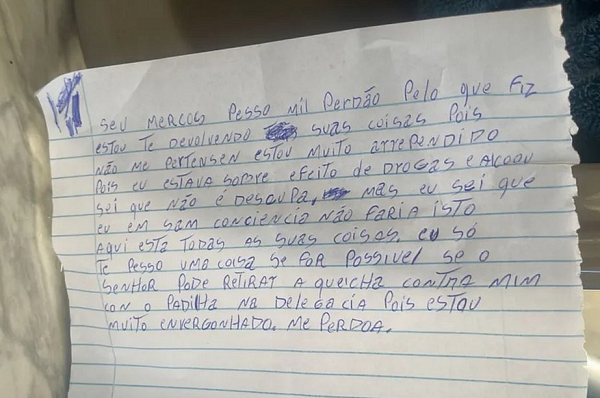 SEU MERCOS PESSO MIL PERDÃO PELO QUE FIZ
ESTOU TE DEVOLVENDO SUAS COISAS POIS
NÃO ME PORTENSEN ESTOU MUITO ARREPENDIDO
POIS EU ESTAVA SOBRE EFEITO DE DROGAS E ALCOOU
SEI QUE NÃO E DESCUPA, MAS EU SEI QUE
EU EM SAM CONCIENCIA NÃO FARIA ISTO
AQUI ESTA TODAS AS SUAS COISAS. EU SÓ
TE PESSO UMA COISA SE FOR POSSIVEL SE O
SENHOR PODE RETIRAR A QUEICHA CONTRA MIM
CON O PADILHA NA DELEGACIA POIS ESTOU
MUITO ENVERGONHADO. ME PERDOA.